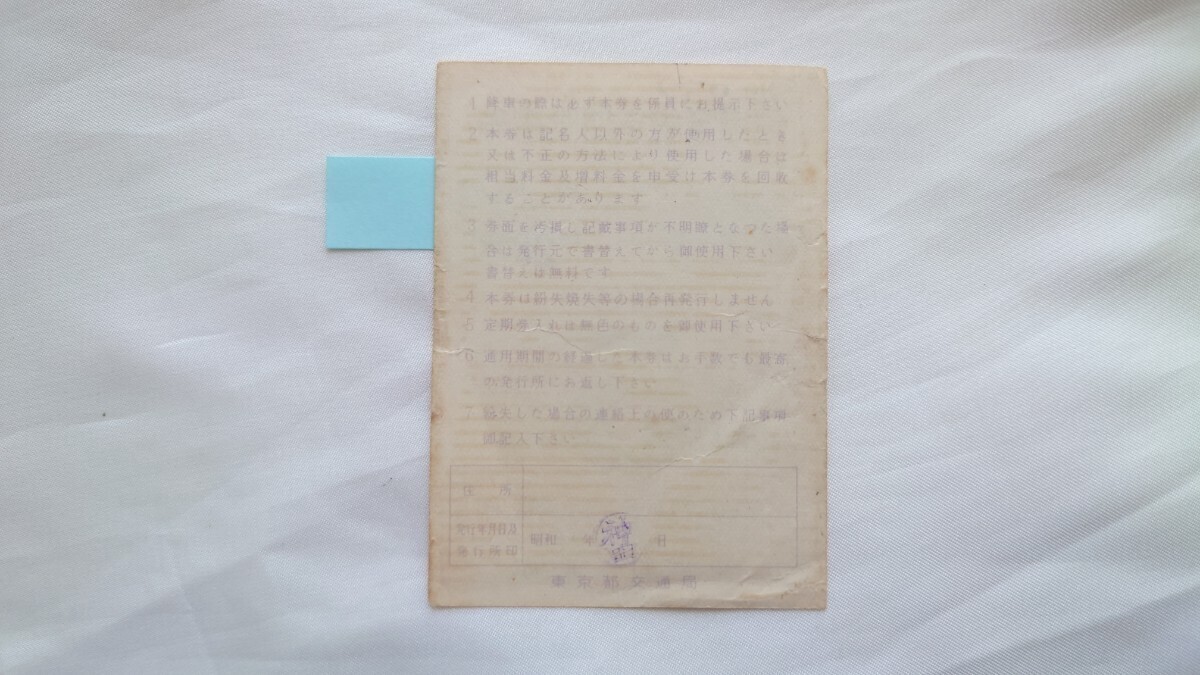 1 降車の際は必ず本券を係員にお提示下さい
2 本券は記名人以外の方が使用したとき
又は不正の方法により使用した場合は
相当料金及増料金を申受け本券を回収
することがあります
3 券面を汚損し記載事項が不明瞭となつた場
合は発行元で書替えてから御使用下さい
書替えは無料です
4 本券は紛失焼失等の場合再発行しません
5 定期券入れは無色のものを御使用下さい
6 通用期間の経過した本券はお手数でも最寄
の発行所にお返し下さい
7 紛失した場合の連絡上の便のため下記事項
御記入下さい
住所
発行年月日及
発行所印
昭和 年 日
東京都交通局